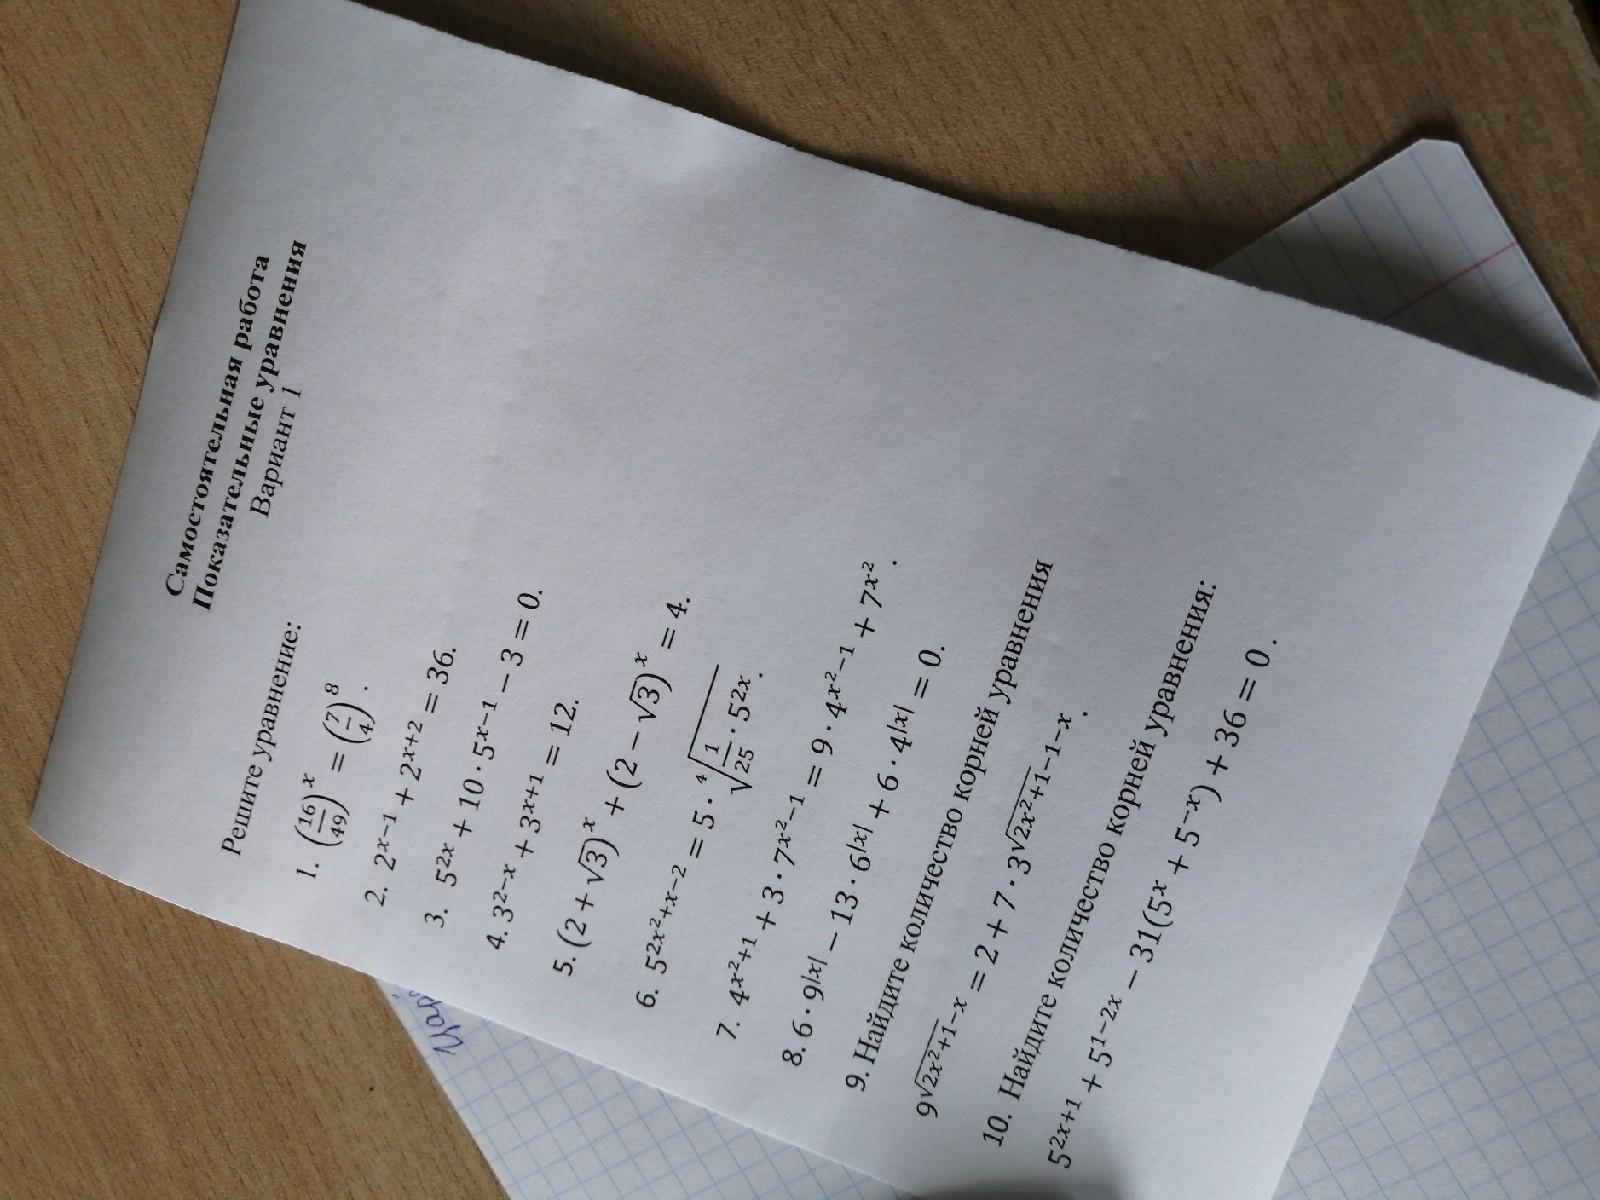 Самостоятельная работа
Показательные уравнения
Вариант 1
Решите уравнение:
1. (16/49)^x = (7/4)^8.
2. 2^(x−1) + 2^(x+2) = 36.
3. 5^(2x) + 10 · 5^(x−1) − 3 = 0.
4. 3^(2−x) + 3^(x+1) = 12.
5. (2 + √3)^x + (2 − √3)^x = 4.
6. 5^(2x²+x−2) = 5 · ⁴√(1/25 · 5^(2x)).
7. 4^(x²+1) + 3 · 7^(x²−1) = 9 · 4^(x²−1) + 7^(x²).
8. 6 · 9^|x| − 13 · 6^|x| + 6 · 4^|x| = 0.
9. Найдите количество корней уравнения
9^(√(2x²+1)−x) = 2 + 7 · 3^(√(2x²+1)−1−x).
10. Найдите количество корней уравнения:
5^(2x+1) + 5^(1−2x) − 31(5^x + 5^(−x)) + 36 = 0.